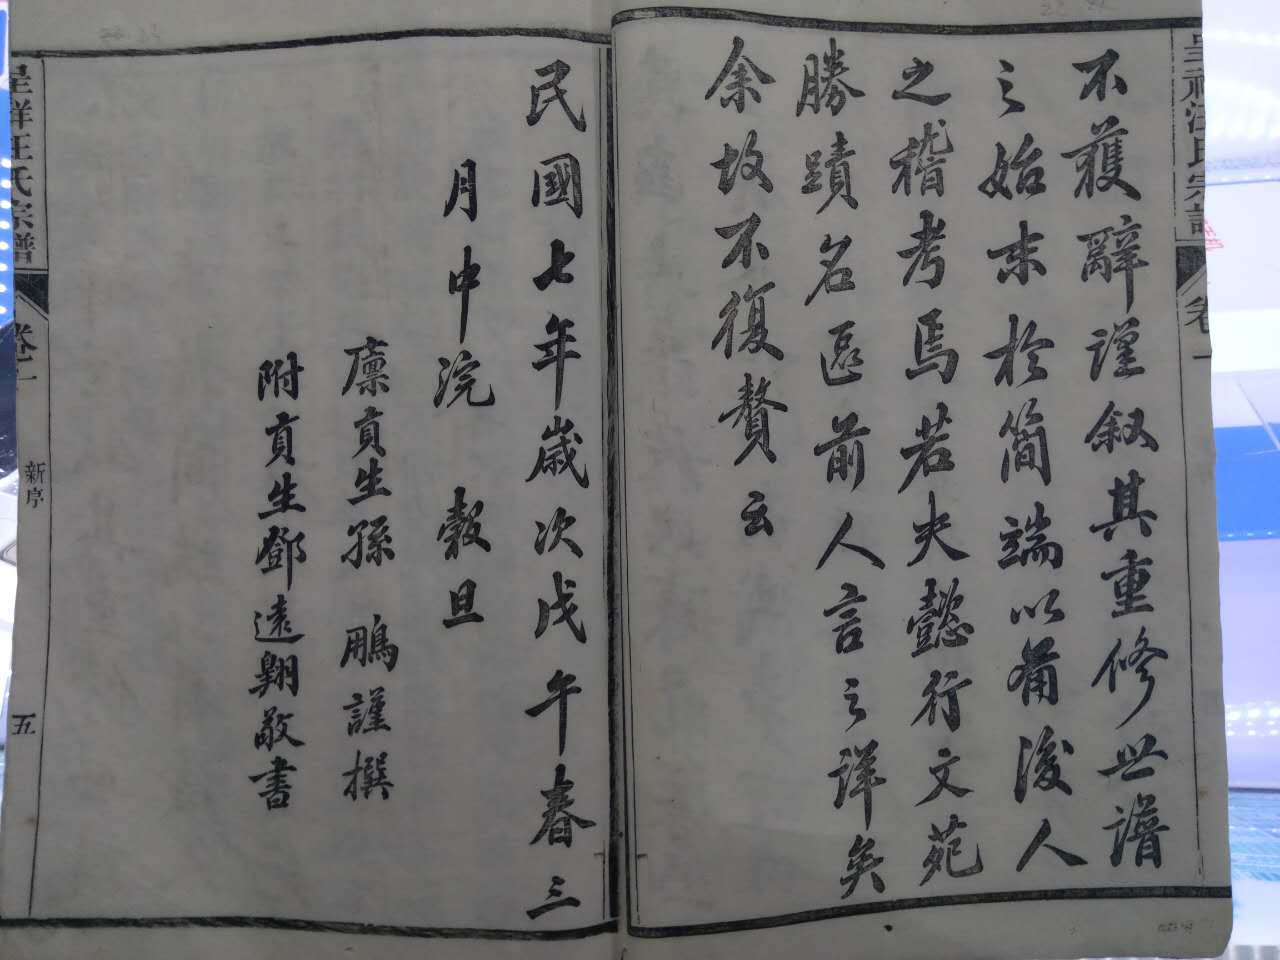 呈祥汪氏宗譜
卷一
不獲辭謹叙其重修世譜
之始末於簡端以俻後人
之稽考焉若夫懿行文苑
勝蹟名區前人言之詳矣
余故不復贅云
民國七年歲次戊午春三
月中浣 穀旦
廩貢生孫 鵬謹撰
附貢生鄧遠翺敬書
呈祥汪氏宗譜
卷一
新序
五